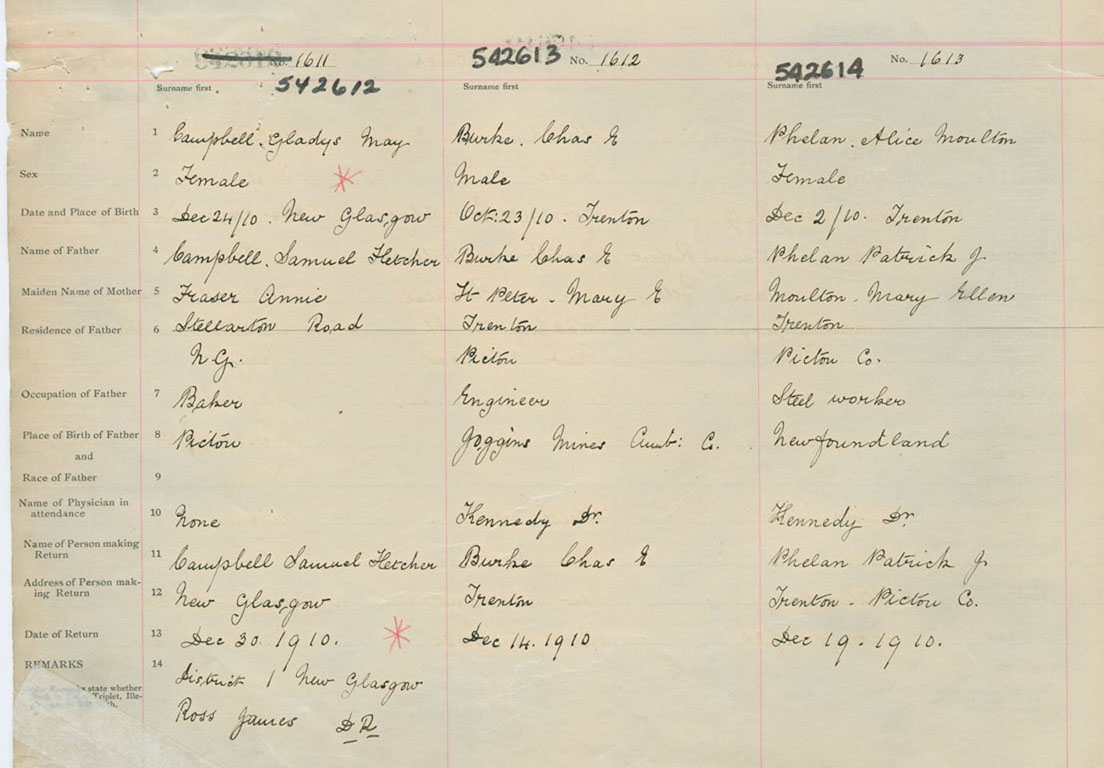 No. 1611 542613 No. 1612 542614 No. 1613
542612
Surname first Surname first Surname first
Name 1 Campbell. Gladys May Burke. Chas E Phelan. Alice Moulton
Sex 2 Female Male Female
Date and Place of Birth 3 Dec 24/10. New Glasgow Oct: 23/10. Trenton Dec 2/10. Trenton
Name of Father 4 Campbell. Samuel Fletcher Burke Chas E Phelan Patrick J
Maiden Name of Mother 5 Fraser Annie St Peter - Mary E Moulton. Mary Ellen
Residence of Father 6 Stellarton Road Trenton Trenton
N.G. Pictou Pictou Co.
Occupation of Father 7 Baker Engineer Steel worker
Place of Birth of Father 8 Pictou Joggins Mines Cumb: Co. Newfoundland
and
Race of Father 9
Name of Physician in
attendance 10 None Kennedy Dr. Kennedy Dr.
Name of Person making
Return 11 Campbell Samuel Fletcher Burke Chas E Phelan Patrick J
Address of Person mak-
ing Return 12 New Glasgow Trenton Trenton - Pictou Co.
Date of Return 13 Dec 30. 1910. Dec 14. 1910 Dec 19. 1910.
REMARKS 14 District 1 New Glasgow
state whether
Triplet, Ille-
Ross James D R